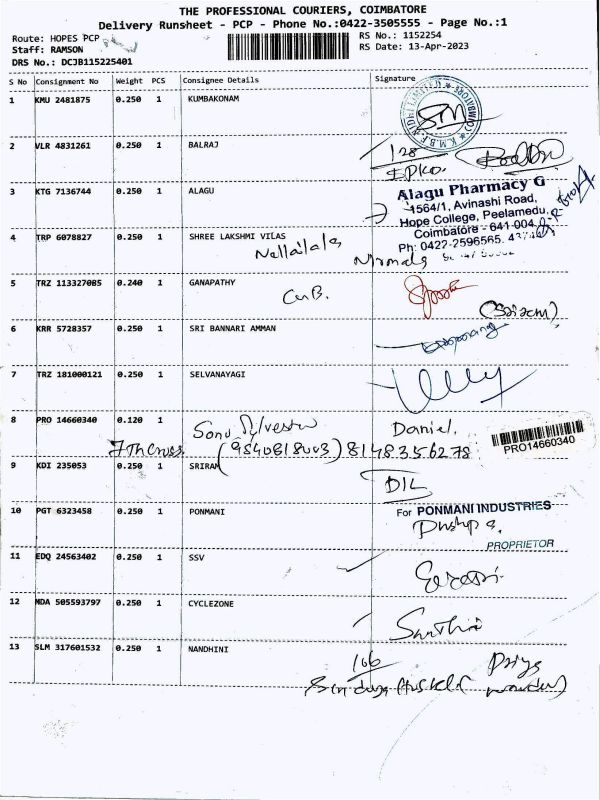 THE PROFESSIONAL COURIERS, COIMBATORE
Delivery Runsheet - PCP - Phone No.:0422-3505555 - Page No.:1
Route: HOPES PCP
Staff: RAMSON
DRS No.: DCJB115225401
RS No.: 1152254
RS Date: 13-Apr-2023
S No Consignment No Weight PCS Consignee Details Signature
1 KMU 2481875 0.250 1 KUMBAKONAM
2 VLR 4831261 0.250 1 BALRAJ 128
3 KTG 7136744 0.250 1 ALAGU
Alagu Pharmacy G
1564/1, Avinashi Road,
Hope College, Peelamedu,
Coimbatore - 641 004
Ph: 0422-2596565.
4 TRP 6078827 0.250 1 SHREE LAKSHMI VILAS
5 TRZ 113327085 0.240 1 GANAPATHY
CUB.
(Sairam)
6 KRR 5728357 0.250 1 SRI BANNARI AMMAN
7 TRZ 181000121 0.250 1 SELVANAYAGI
8 PRO 14660340 0.120 1 Daniel.
8148356278
PRO14660340
9 KDI 235053 0.250 1 SRIRAM
10 PGT 6323458 0.250 1 PONMANI
For PONMANI INDUSTRIES
Pushpa.
PROPRIETOR
11 EDQ 24563402 0.250 1 SSV
12 MDA 505593797 0.250 1 CYCLEZONE
13 SLM 317601532 0.250 1 NANDHINI
166 Priya